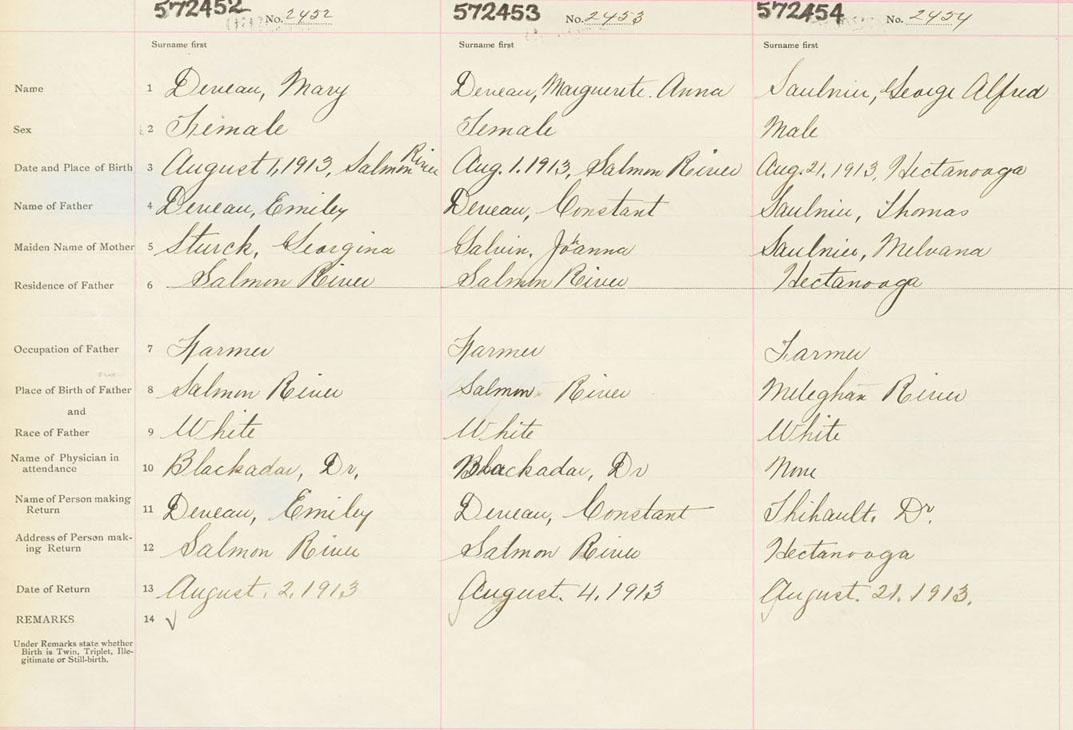 572452 No. 2452 572453 No. 2453 572454 No. 2454
Surname first Surname first Surname first
Name 1 Deveau, Mary Deveau, Marguerite. Anna Saulnier, George Alfred
Sex 2 Female Female Male
Date and Place of Birth 3 August 1, 1913, Salmon River Aug. 1. 1913, Salmon River Aug. 21, 1913, Hectanooga
Name of Father 4 Deveau, Emiley Deveau, Constant Saulnier, Thomas
Maiden Name of Mother 5 Sturck, Georgina Galvin, Joanna Saulnier, Melvana
Residence of Father 6 Salmon River Salmon River Hectanooga
Occupation of Father 7 Farmer Farmer Farmer
Place of Birth of Father 8 Salmon River Salmon River Meteghan River
and
Race of Father 9 White White White
Name of Physician in
attendance 10 Blackadar, Dr, Blackadar, Dr None
Name of Person making
Return 11 Deveau, Emiley Deveau, Constant Thibault. Dr.
Address of Person mak-
ing Return 12 Salmon River Salmon River Hectanooga
Date of Return 13 August. 2, 1913 August. 4, 1913 August. 21. 1913.
REMARKS 14 √
Under Remarks state whether
Birth is Twin, Triplet, Ille-
gitimate or Still-birth.